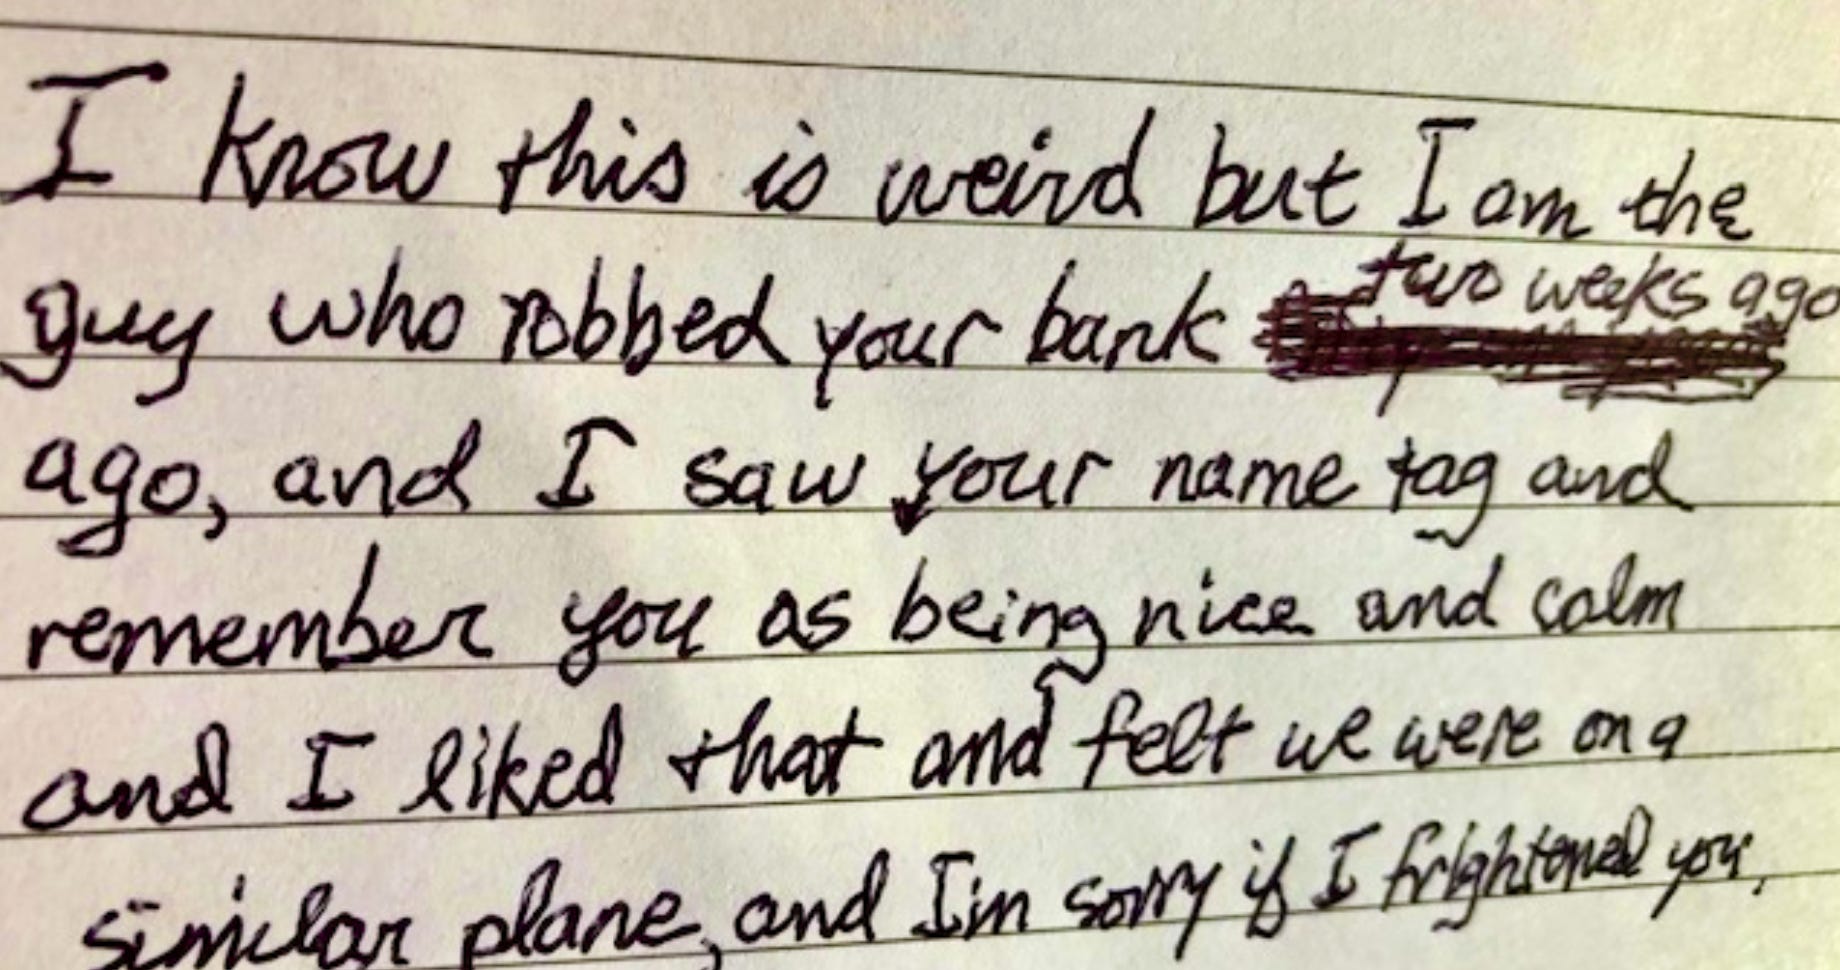 I know this is weird but I am the
guy who robbed your bank two weeks ago
ago, and I saw your name tag and
remember you as being nice and calm
and I liked that and felt we were on a
similar plane, and I'm sorry if I frightened you,